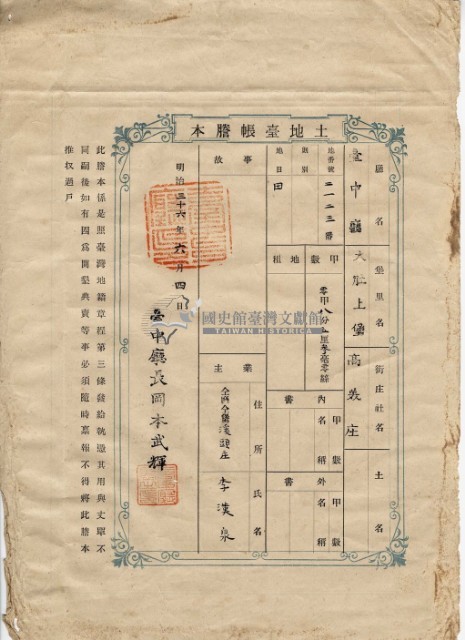 土地臺帳謄本
廳名 臺中廳
堡里名 大肚上堡
街庄社名 高美庄
土名
地番號 二一二三番
則別
地目 田
甲數 零甲八分
地租
內書 甲數 名稱
外書 甲數 名稱
事故
業主
住所 溪頭庄
氏名 李漢泉
明治三十六年六月四日
臺中廳長岡本武輝
此謄本係是照臺灣地籍章程第三條發給執憑其用與丈單不
同嗣後如有因為開墾典賣等事必須隨時稟報不得將此謄本
推收過戶
國史館臺灣文獻館
TAIWAN HISTORICA